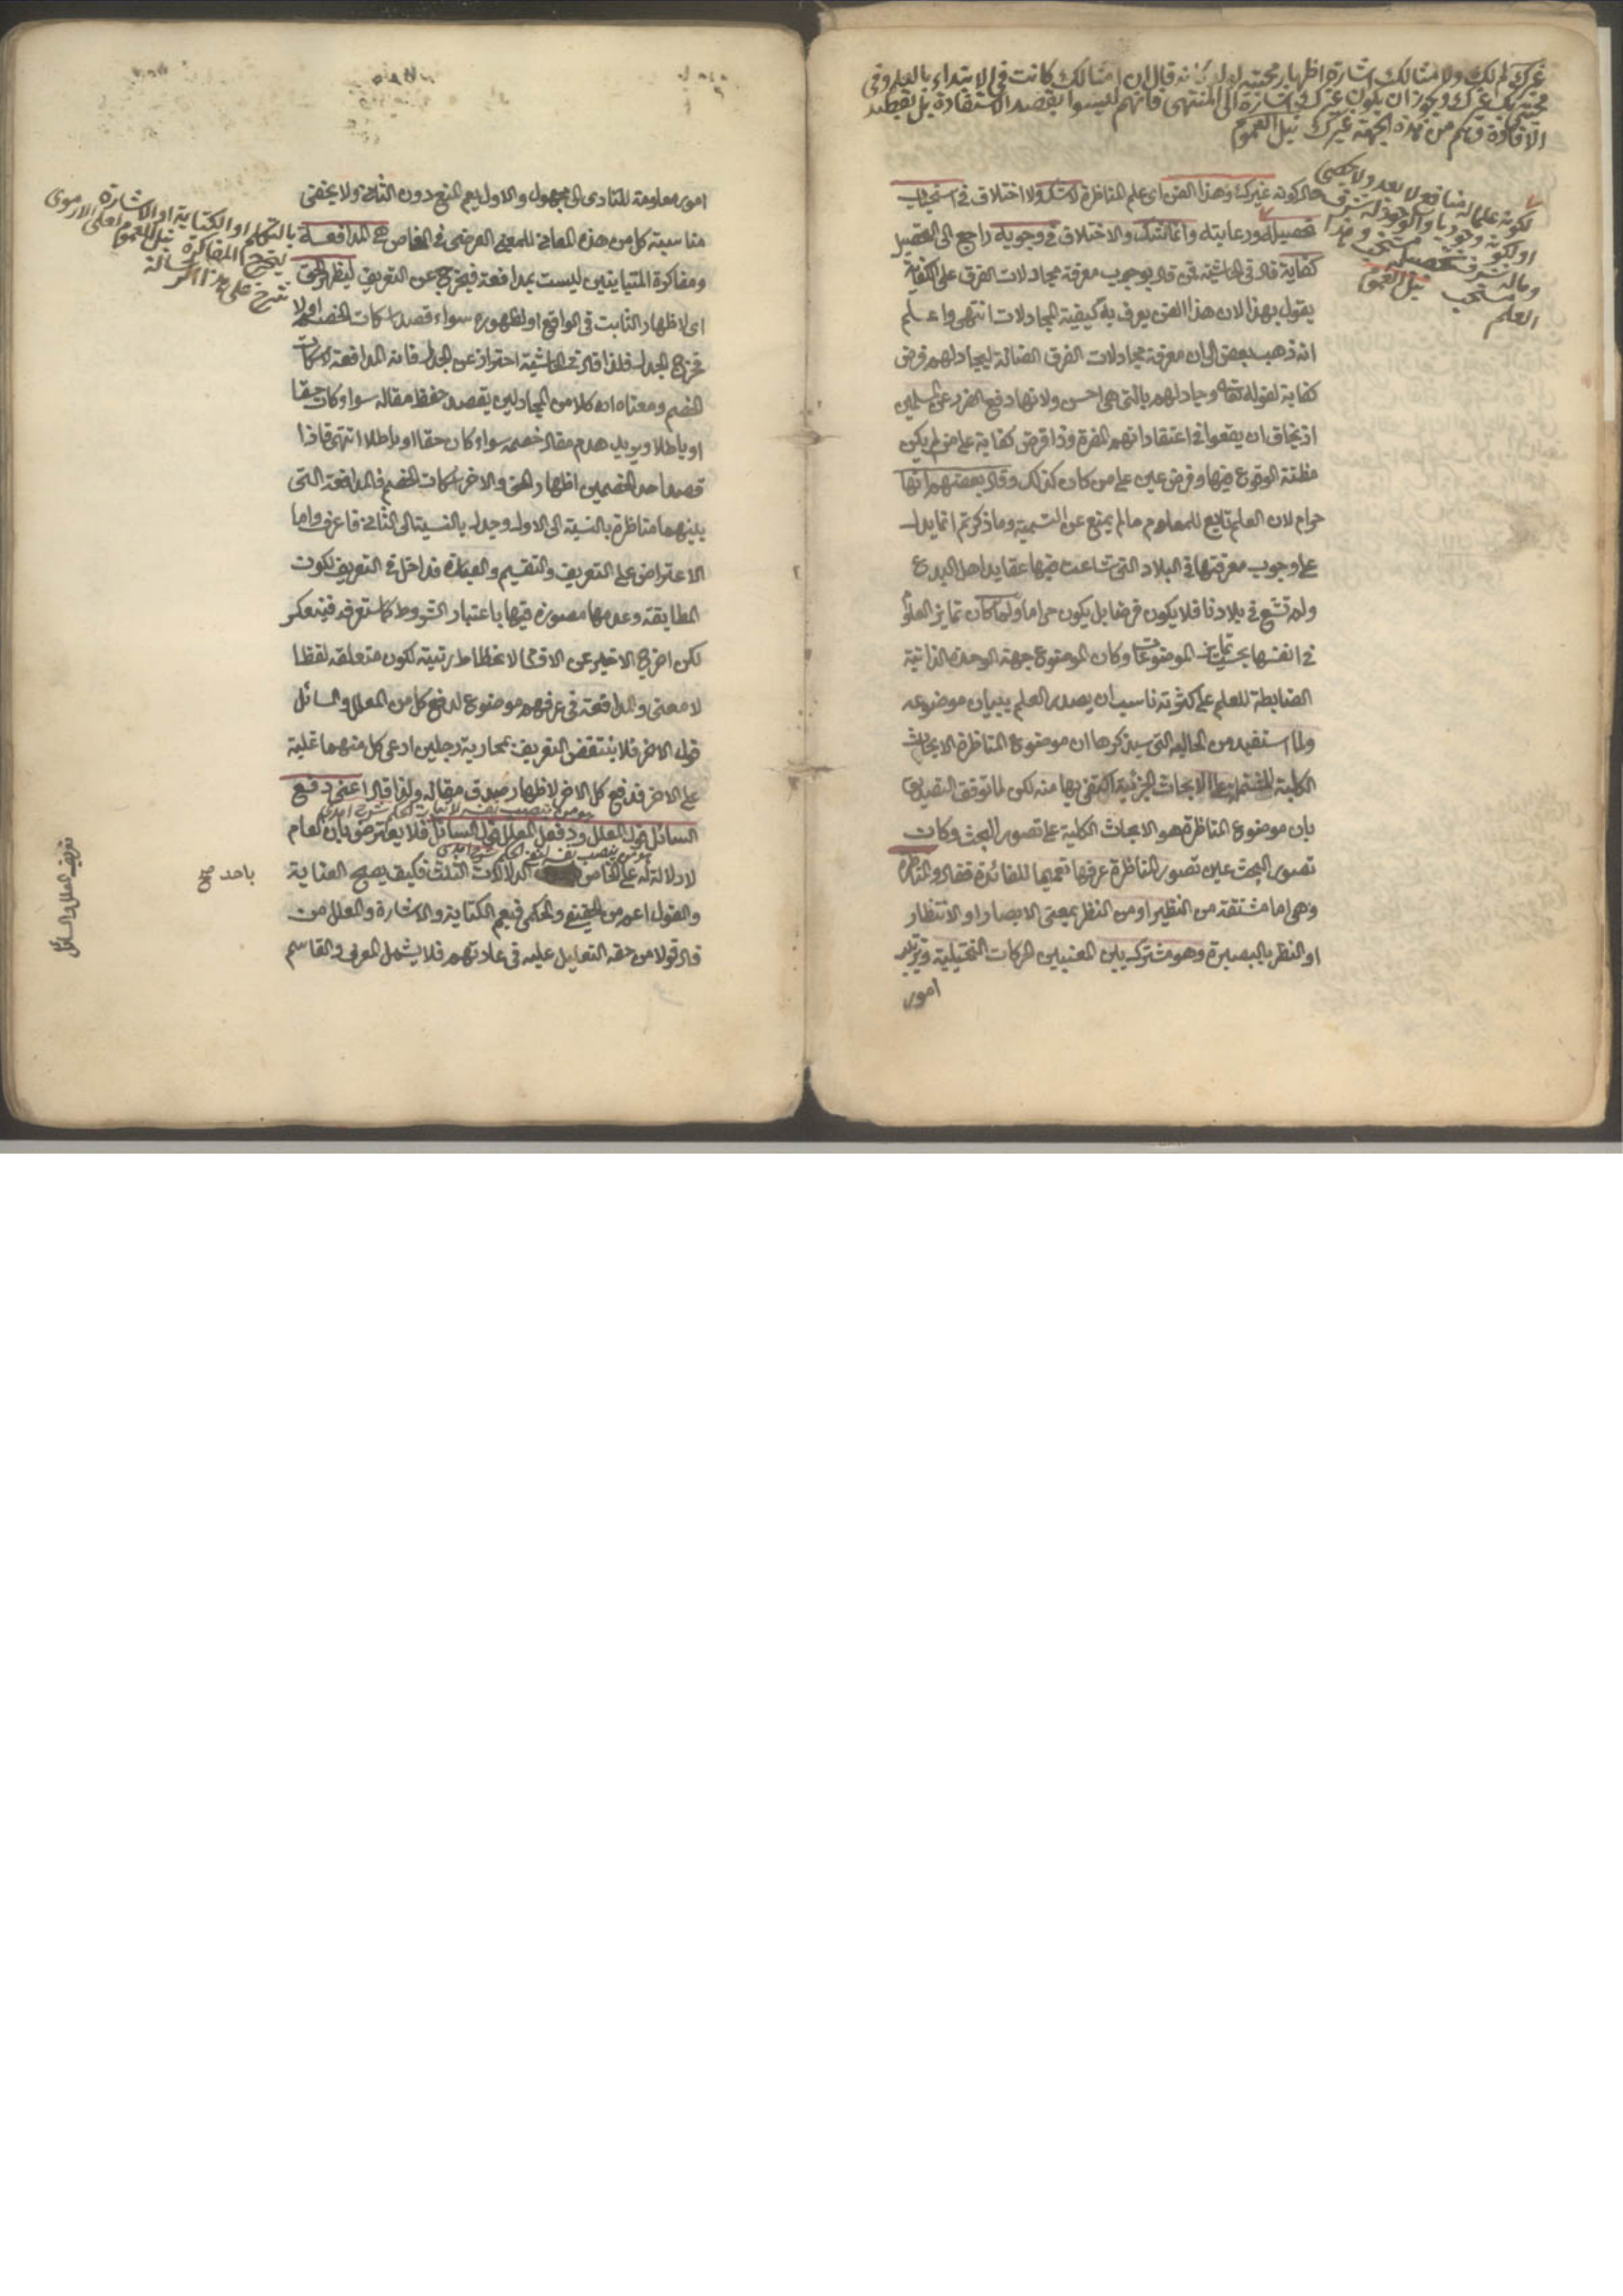 غيرك لم لك ولامثالك اشارة اظهار محبته له لانه قال ان امثالك كانت في الابتداء بالعلم وفي
محبتي بك غيرك ويجوز ان يكون غيرك اشارة الى المنتهى فانهم ليسوا بقصد الاستفادة بل بقصد
الافادة وهم من هذه الجهة غيرك نيل العموم
لكونه علما له منافع لا يعد ولا يحصى
او لكونه وجوديا والوجود له شرف
وماله شرف تحصيله مستحب وهذا
العلم مستحب نيل العموم
حال كونه غيرك وهذا الفن اى علم المناظرة لا شك ولا اختلاف في استحباب
تحصيله ورعايته وانما الشك والاختلاف في وجوبه راجع الى التحصيل
كفاية قال في الحاشية فمن قال بوجوب معرفة مجادلات الفرق على الكفاية
يقول بهذا لان هذا الفن يعرف به كيفية المجادلات انتهى واعلم
انه ذهب بعض الى ان معرفة مجادلات الفرق الضالة ليجادلهم فرض
كفاية لقوله تعالى وجادلهم بالتى هى احسن ولانها دفع الضرر عن المسلمين
اذ يخاف ان يقعوا في اعتقاداتهم المضرة وذا فرض كفاية على من لم يكن
مظنة الوقوع فيها وفرض عين على من كان كذلك وقال بعضهم انها
حرام لان العلم تابع للمعلوم مالم يمنع عن التسمية وما ذكرتم انما يدل
على وجوب معرفتها في البلاد التى شاعت فيها عقايد اهل البدع
ولم تشع في بلادنا فلا يكون فرضا بل يكون حراما ولما كان تمايز العلوم
في انفسها بحسب تمايز الموضوعات وكان الموضوع جهة الوحدة الذاتية
الضابطة للعلم على كثرته ناسب ان يصدر العلم ببيان موضوعه
ولما استفيد من الحالية التى سيذكرها ان موضوع المناظرة الابحاث
الكلية المشتمل عليها الابحاث الجزئية اكتفى بها منه لكن لما توقف التصديق
بان موضوع المناظرة هو الابحاث الكلية على تصور البحث وكان
تصور البحث عين تصور المناظرة عرفها تعميما للفائدة فقال والمناظرة
وهى اما مشتقة من النظير او من النظر بمعنى الابصار او الانتظار
او النظر بالبصيرة وهو مشترك بين المعنيين الحركات التخيلية وترتيب
امور
امور معلومة للتادى الى مجهول والاول يعم المنع دون الثانى ولا يخفى
مناسبة كل من هذه المعانى للمعنى العرفى في الخاص هى المدافعة
ومفاكرة المتباينين ليست بمدافعة فيخرج عن التعريف ليظهر الحق
اى لاظهار الثابت في الواقع او لظهوره سواء قصد اسكات الخصم اولا
فخرج الجدل فلذا قال في الحاشية احتراز عن الجدل فانه المدافعة لاسكات
الخصم ومعناه ان كلا من المجادلين يقصد حفظ مقاله سواء كان حقا
او باطلا ويريد هدم مقال خصمه سواء كان حقا او باطلا انتهى فاذا
قصد احد الخصمين اظهار الحق والاخر اسكات الخصم فالمدافعة التى
بينهما مناظرة بالنسبة الى الاول وجدل بالنسبة الى الثانى فاعرف واما
الاعتراض على التعريف والتقسيم والعبارة فداخل في التعريف لكون
المطابقة وعدمها متصورة فيها باعتبار الشروط كما ستعرفه
لكن اخرج الاخير عن الاقسام لانحطاط رتبته لكون متعلقه لفظا
لا معنى والمدافعة في عرفهم موضوع لدفع كل من المعلل والسائل
قول الاخر فلا ينتقض التعريف بمحاربة رجلين ادعى كل منهما غلبة
على الاخر فدفع كل الاخر لاظهار صدق مقاله ولذا قال اعنى دفع
هو من ينصب نفسه لاثبات الحكم شرح امدى
السائل قول المعلل ودفع المعلل قول السائل فلا يعترض بان العام
هو من ينصب نفسه لنفى الحكم شرح امدى
لا دلالة له على الخاص الدلالات الثلث فكيف يصح العناية
والقول اعم من الحقيقى والحكمى فيعم الكتابة والاشارة والمعلل من
قال قولا من حقه التعليل عليه في عادتهم فلا يشمل المعرف والقاسم
بالتكلم او الكتابة او الاشارة
ليخرج المفاكرة نيل العموم اعلى الارموى
شرح على هذا الرسالة
باحد صح
تعريف المعلل والسائل